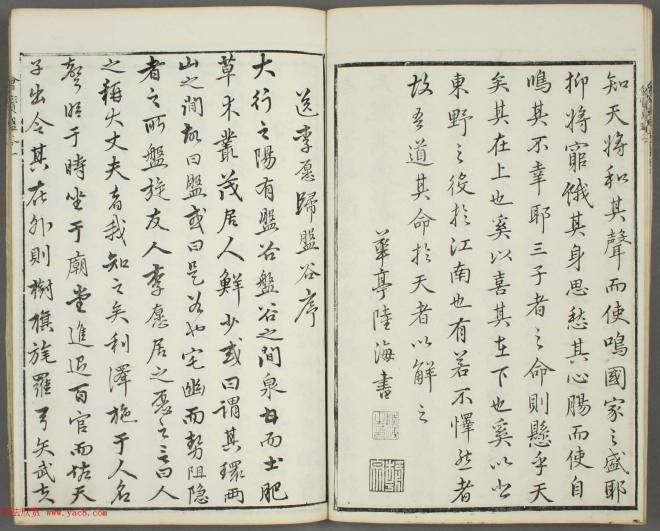 知天將和其聲而使鳴國家之盛耶
抑將窮餓其身思愁其心腸而使自
鳴其不幸耶三子者之命則懸乎天
矣其在上也奚以喜其在下也奚以悲
東野之役於江南也有若不懌然者
故吾道其命於天者以解之
華亭陸海書
送李愿歸盤谷序
大行之陽有盤谷盤谷之間泉甘而土肥
草木叢茂居人鮮少或曰謂其環兩
山之間故曰盤或曰是谷也宅幽而勢阻隱
者之所盤旋友人李愿居之愿之言曰人
之稱大丈夫者我知之矣利澤施于人名
聲昭于時坐于廟堂進退百官而佐天
子出令其在外則樹旗旄羅弓矢武夫
www.yac8.com